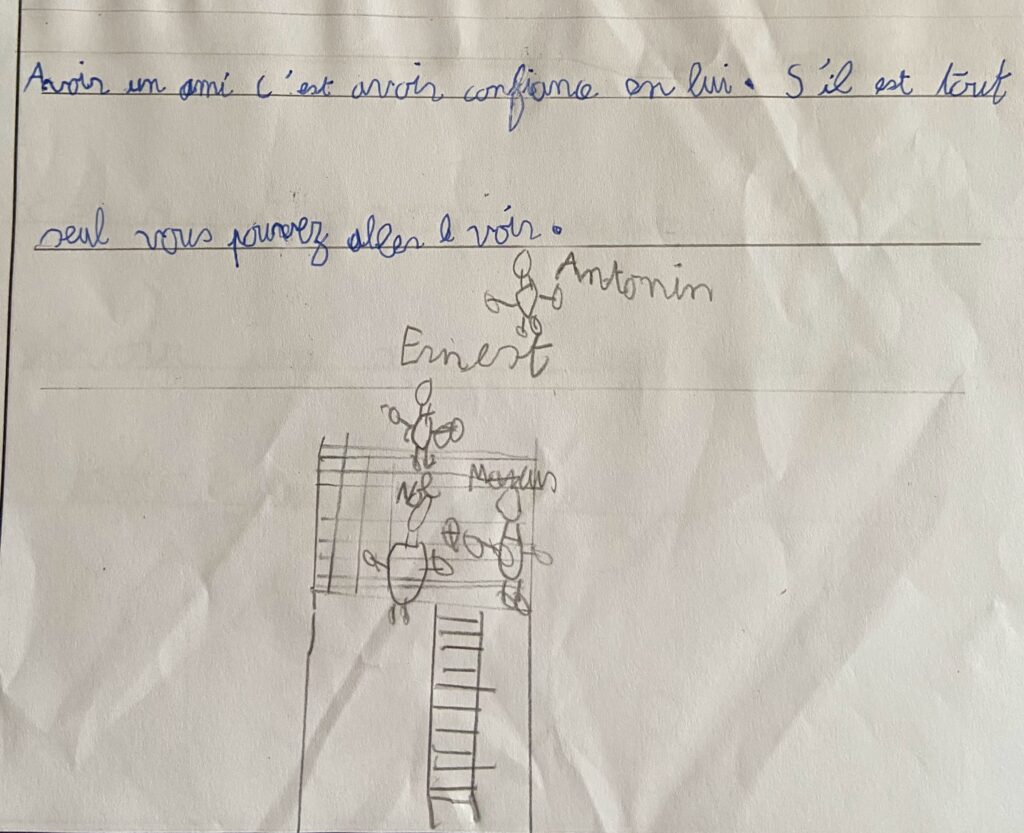 Avoir un ami c'est avoir confiance en lui. S'il est tout
seul vous pouvez aller le voir.
Antonin
Ernest